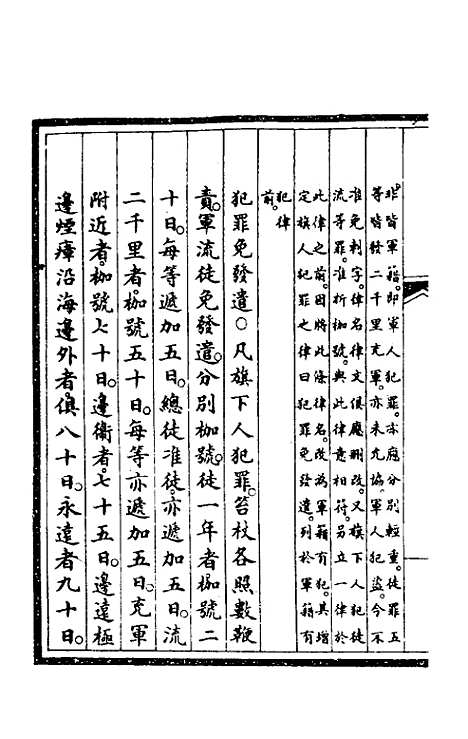 非皆軍籍。即軍人犯罪。亦應分別輕重。徒罪五
等皆發二千里充軍。亦未允協。軍人犯盜。今不
准免刺字。律名律文俱應刪改。又旗下人犯徒
流等罪。准折枷號。與此律意相符。另立一律於
此律之前。因將此條律名。改為軍籍有犯。其增
定旗人犯罪之律曰犯罪免發遣。列於軍籍有
犯律
前。
犯罪免發遣○凡旗下人犯罪。笞杖各照數鞭
責。軍流徒免發遣。分別枷號。徒一年者枷號二
十日。每等遞加五日。總徒准徒。亦遞加五日。流
二千里者。枷號五十日。每等亦遞加五日。充軍
附近者。枷號七十日。邊衛者。七十五日。邊遠極
邊煙瘴沿海邊外者。俱八十日。永遠者九十日。